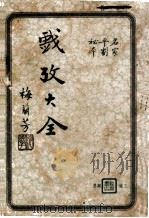 名家
平劇
秘本
戲考大全
梅蘭芳